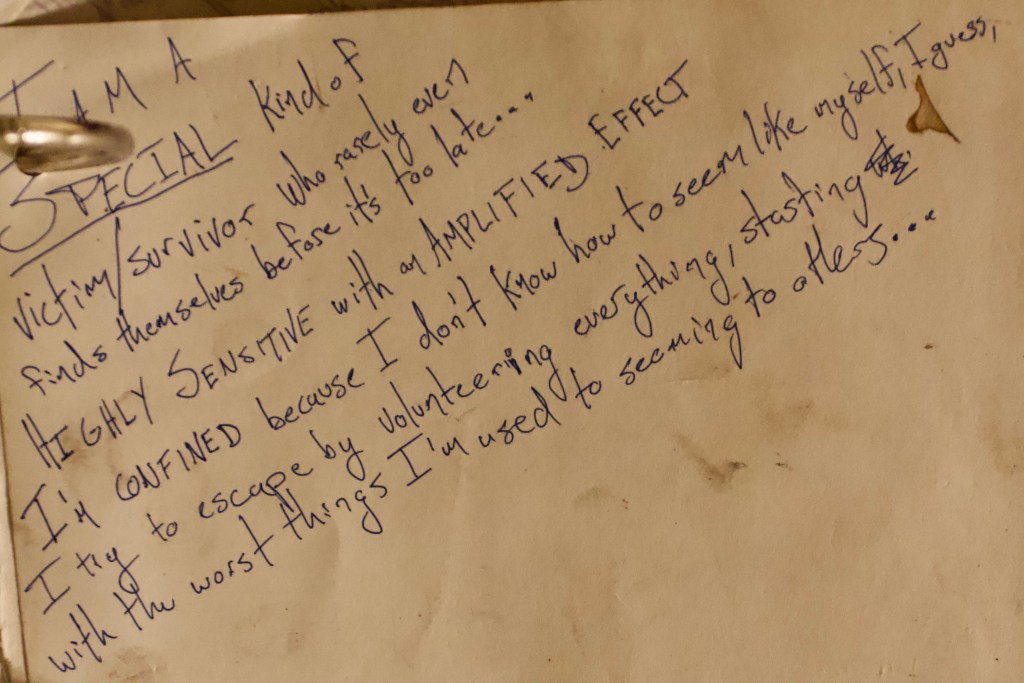 I AM A
SPECIAL Kind of
victim/survivor who rarely even
finds themselves before it's too late...
HIGHLY SENSITIVE with an AMPLIFIED EFFECT
I'M CONFINED because I don't know how to seem like myself, I guess,
I try to escape by volunteering everything, starting
with the worst things I'm used to seeming to others...